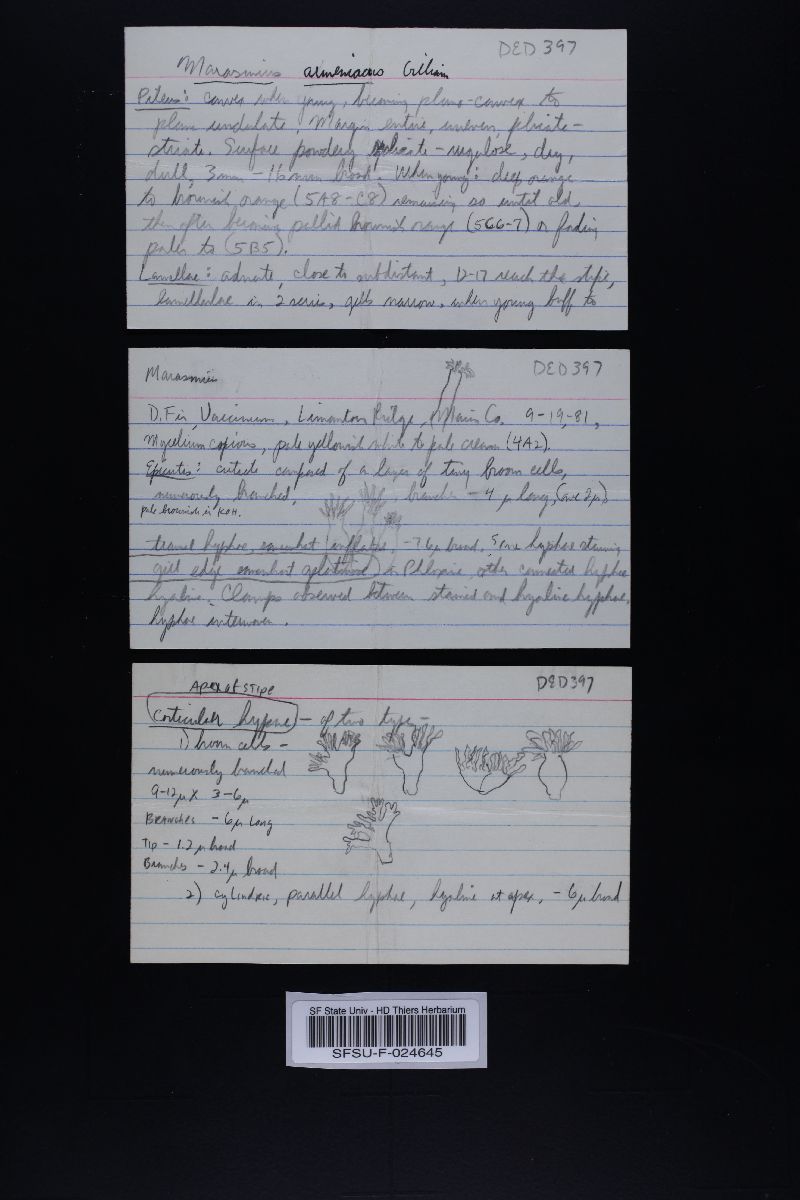 DED 397
Marasmius armeniacus Gilliam
Pileus: convex when young, becoming plano-convex to
plane undulate, Margin entire, uneven, plicate-
striate. Surface powdery plicate-rugulose, dry,
dull, 3mm - 16mm broad. When young: deep orange
to brownish orange (5A8-C8) remaining so until old
then often becoming pallid brownish orange (5C6-7) or fading
paler to (5B5).
Lamellae: adnate, close to subdistant, 12-17 reach the stipe,
lamellulae in 2 series, gills narrow, when young buff to
DED 397
Marasmius
D. Fir, Vaccinium, Limantour Ridge, Marin Co. 9-19-81,
Mycelium copious, pale yellowish white to pale cream (4A2).
Epicutis: cuticle composed of a layer of tiny broom cells,
numerously branched, branches - 4 µ long, (are 2µ)
pale brownish in KOH.
tramal hyphae, somewhat inflated, -7.6µ broad, some hyphae staining
gill edge somewhat gelatinized in Phloxine, other connected hyphae
hyaline. Clamps observed between stained and hyaline hyphae,
hyphae interwoven.
DED397
Apex of STIPE
Corticular hyphae - of two types -
1) broom cells -
numerously branched
9-12µ x 3-6µ
BRANCHES - 6µ Long
Tip - 1.2µ broad
Branches - 2.4µ broad
2) cylindric, parallel hyphae, hyaline at apex, - 6µ broad
SF State Univ - HD Thiers Herbarium
SFSU-F-024645